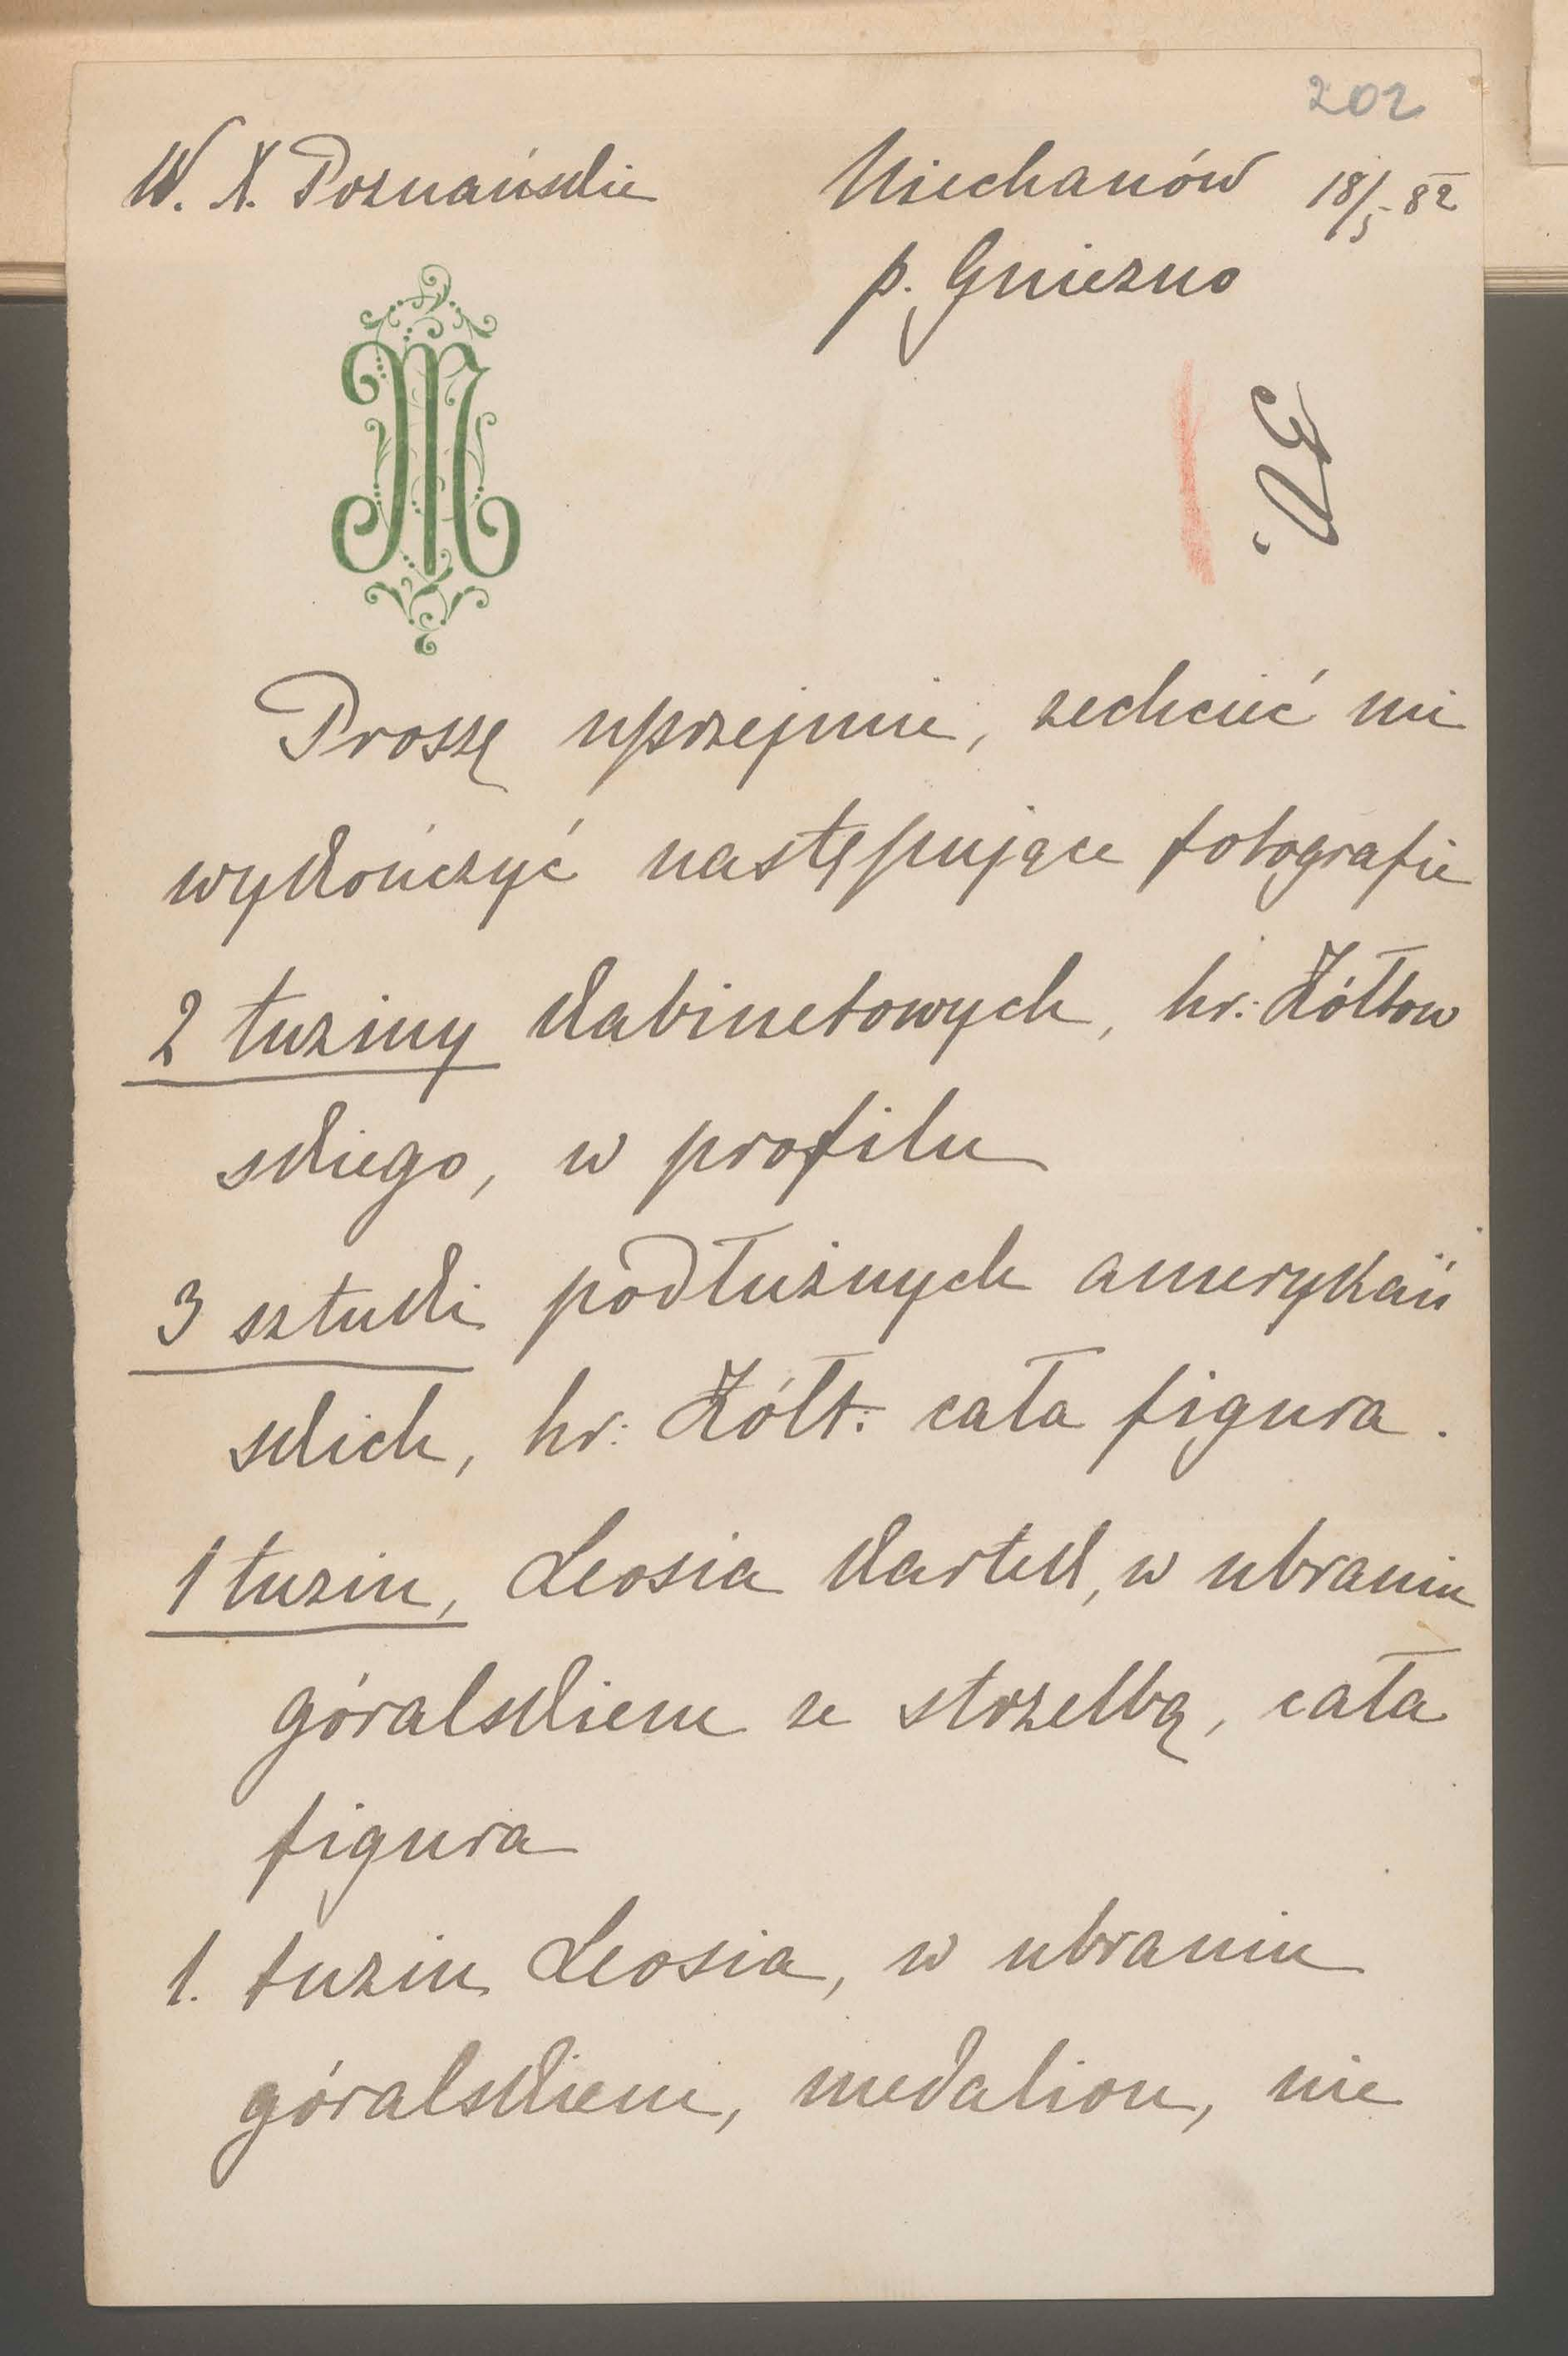 202
W. X. Poznańskie
Niechanów 18/5 82
p. Gniezno
M
Proszę uprzejmie, zechcieć mi
wykończyć następujące fotografie
2 tuziny kabinetowych, hr. Żółtow
skiego, w profilu
3 sztuki podłużnych amerykań
skich, hr. Żółt. cała figura.
1 tuzin, Leosia kartek, w ubraniu
góralskiem ze strzelbą, cała
figura
1. tuzin Leosia, w ubraniu
góralskiem, medalion, nie